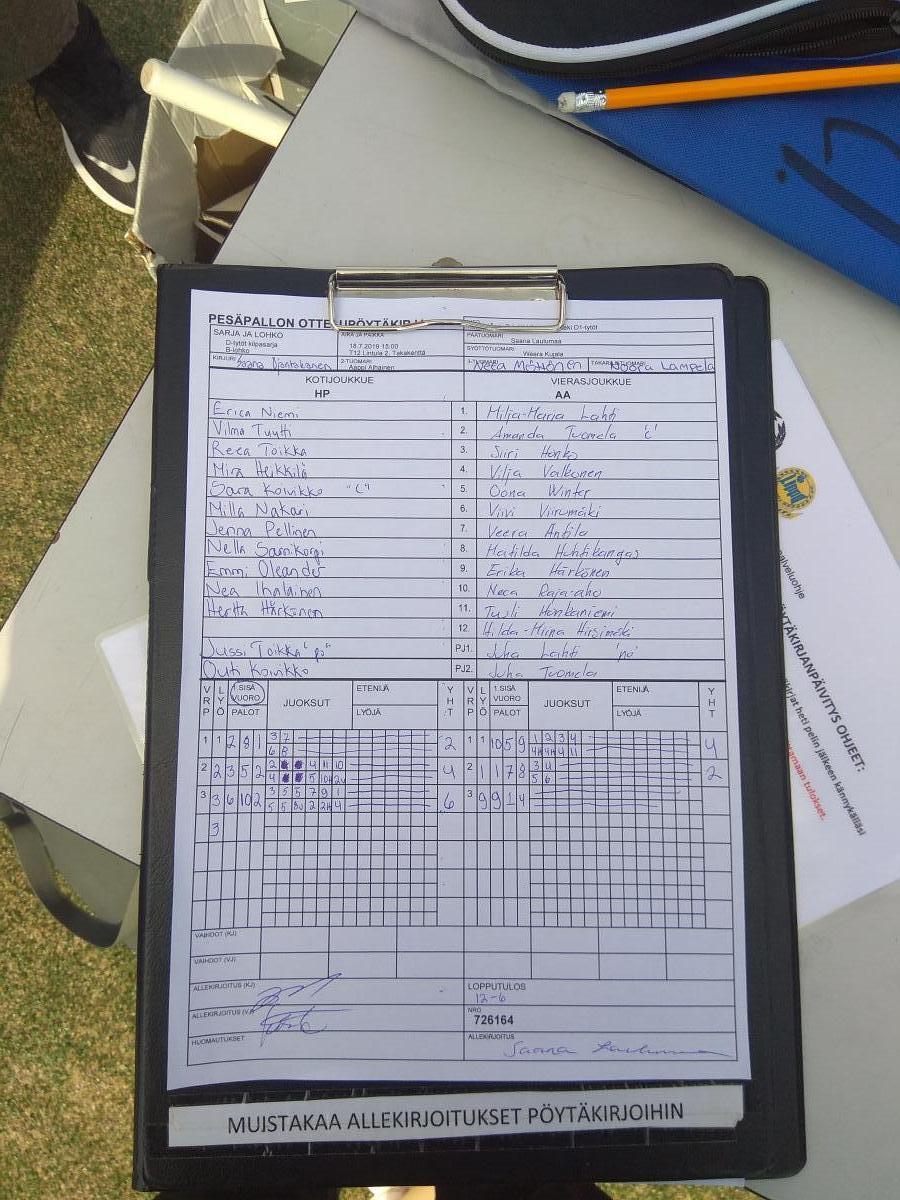 PESÄPALLON OTTELUPÖYTÄKIRJA
D1-tytöt
SARJA JA LOHKO
D-tytöt kilpasarja
B-lohko
AIKA JA PAIKKA
18.7.2019 15:00
T12 Lintula 2. Takakenttä
PÄÄTUOMARI
Saana Lautumaa
SYÖTTÖTUOMARI
Weera Kujala
KIRJURI Saana
2-TUOMARI
Aappi Alhainen
Neea Möttönen
Noora Lampela
KOTIJOUKKUE
HP
VIERASJOUKKUE
AA
Erica Niemi 1. Milja-Maria Lahti
Vilma Tuutti 2. Amanda Tuomela 'c'
Reea Toikka 3. Siiri Honko
Mira Heikkilä 4. Vilja Valkonen
Sara Koivikko "C" 5. Oona Winter
Milla Nakari 6. Viivi Viirumäki
Jenna Pellinen 7. Veera Antila
Nella 8. Matilda Huhtikangas
Emmi Oleander 9. Erika Härkönen
Nea Ihalainen 10. Neea Raja-aho
Hertta Härkönen 11. Tuuli Honkaniemi
12. Hilda-Miina Hirsimäki
Jussi Toikka "pj" PJ1. Juha Lahti 'pj'
Outi Koivikko PJ2. Juha Tuomela
VRP LYÖ 1 SISÄ VUORO PALOT JUOKSUT ETENIJÄ LYÖJÄ YHT VRP LYÖ 1 SISÄ VUORO PALOT JUOKSUT ETENIJÄ LYÖJÄ YHT
1 1 2 8 1 3 7 2 1 1 10 5 9 1 2 3 4 4
6 8
2 2 3 5 2 4 11 10 4 2 1 1 7 8 3 4 2
5 6
3 3 6 10 2 3 5 5 7 9 1 6 3 9 9 1 4
3
VAIHDOT (KJ)
VAIHDOT (VJ)
ALLEKIRJOITUS (KJ)
LOPPUTULOS
12-6
ALLEKIRJOITUS (VJ)
NRO
726164
HUOMAUTUKSET
ALLEKIRJOITUS
Saana Lautumaa
MUISTAKAA ALLEKIRJOITUKSET PÖYTÄKIRJOIHIN
PÖYTÄKIRJANPÄIVITYS OHJEET:
heti pelin jälkeen kännykälläsi
tulokset.